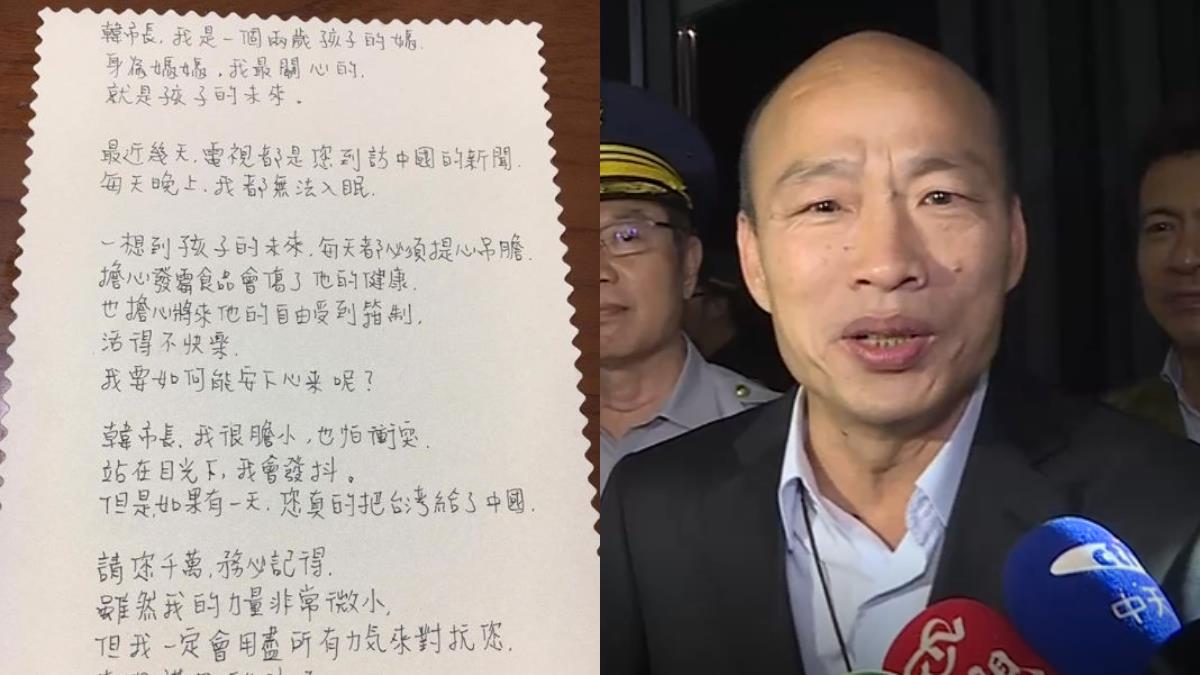 韓市長，我是一個兩歲孩子的媽．
身為媽媽，我最關心的．
就是孩子的未來。
最近幾天，電視都是您到訪中國的新聞．
每天晚上，我都無法入眠．
一想到孩子的未來，每天都必須提心吊膽．
擔心發霉食品會傷了他的健康．
也擔心將來他的自由受到箝制，
活得不快樂．
我要如何能安下心來呢？
韓市長，我很膽小，也怕衝突．
站在目光下，我會發抖。
但是，如果有一天，您真的把台灣給了中國．
請您千萬，務必記得．
雖然我的力量非常微小，
但我一定會用盡所有力氣來對抗您．
中天